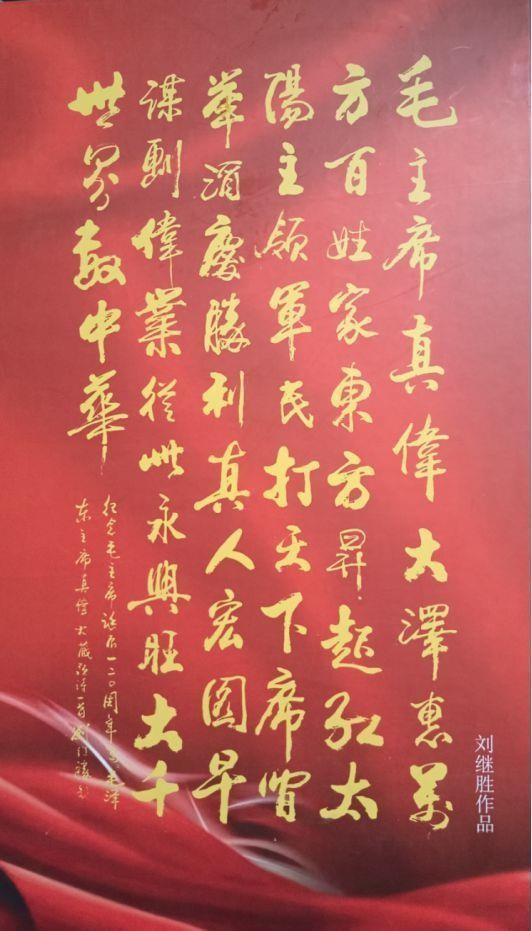 毛主席真偉大澤惠萬
方百姓家東方昇起紅太
陽主領軍民打天下席間
舉酒慶勝利真人宏圖早
謀劃偉業從此永興旺大千
世界敬中華
纪念毛主席诞辰一二〇周年 毛泽
东主席真伟大藏头诗一首 刘继胜
刘继胜作品